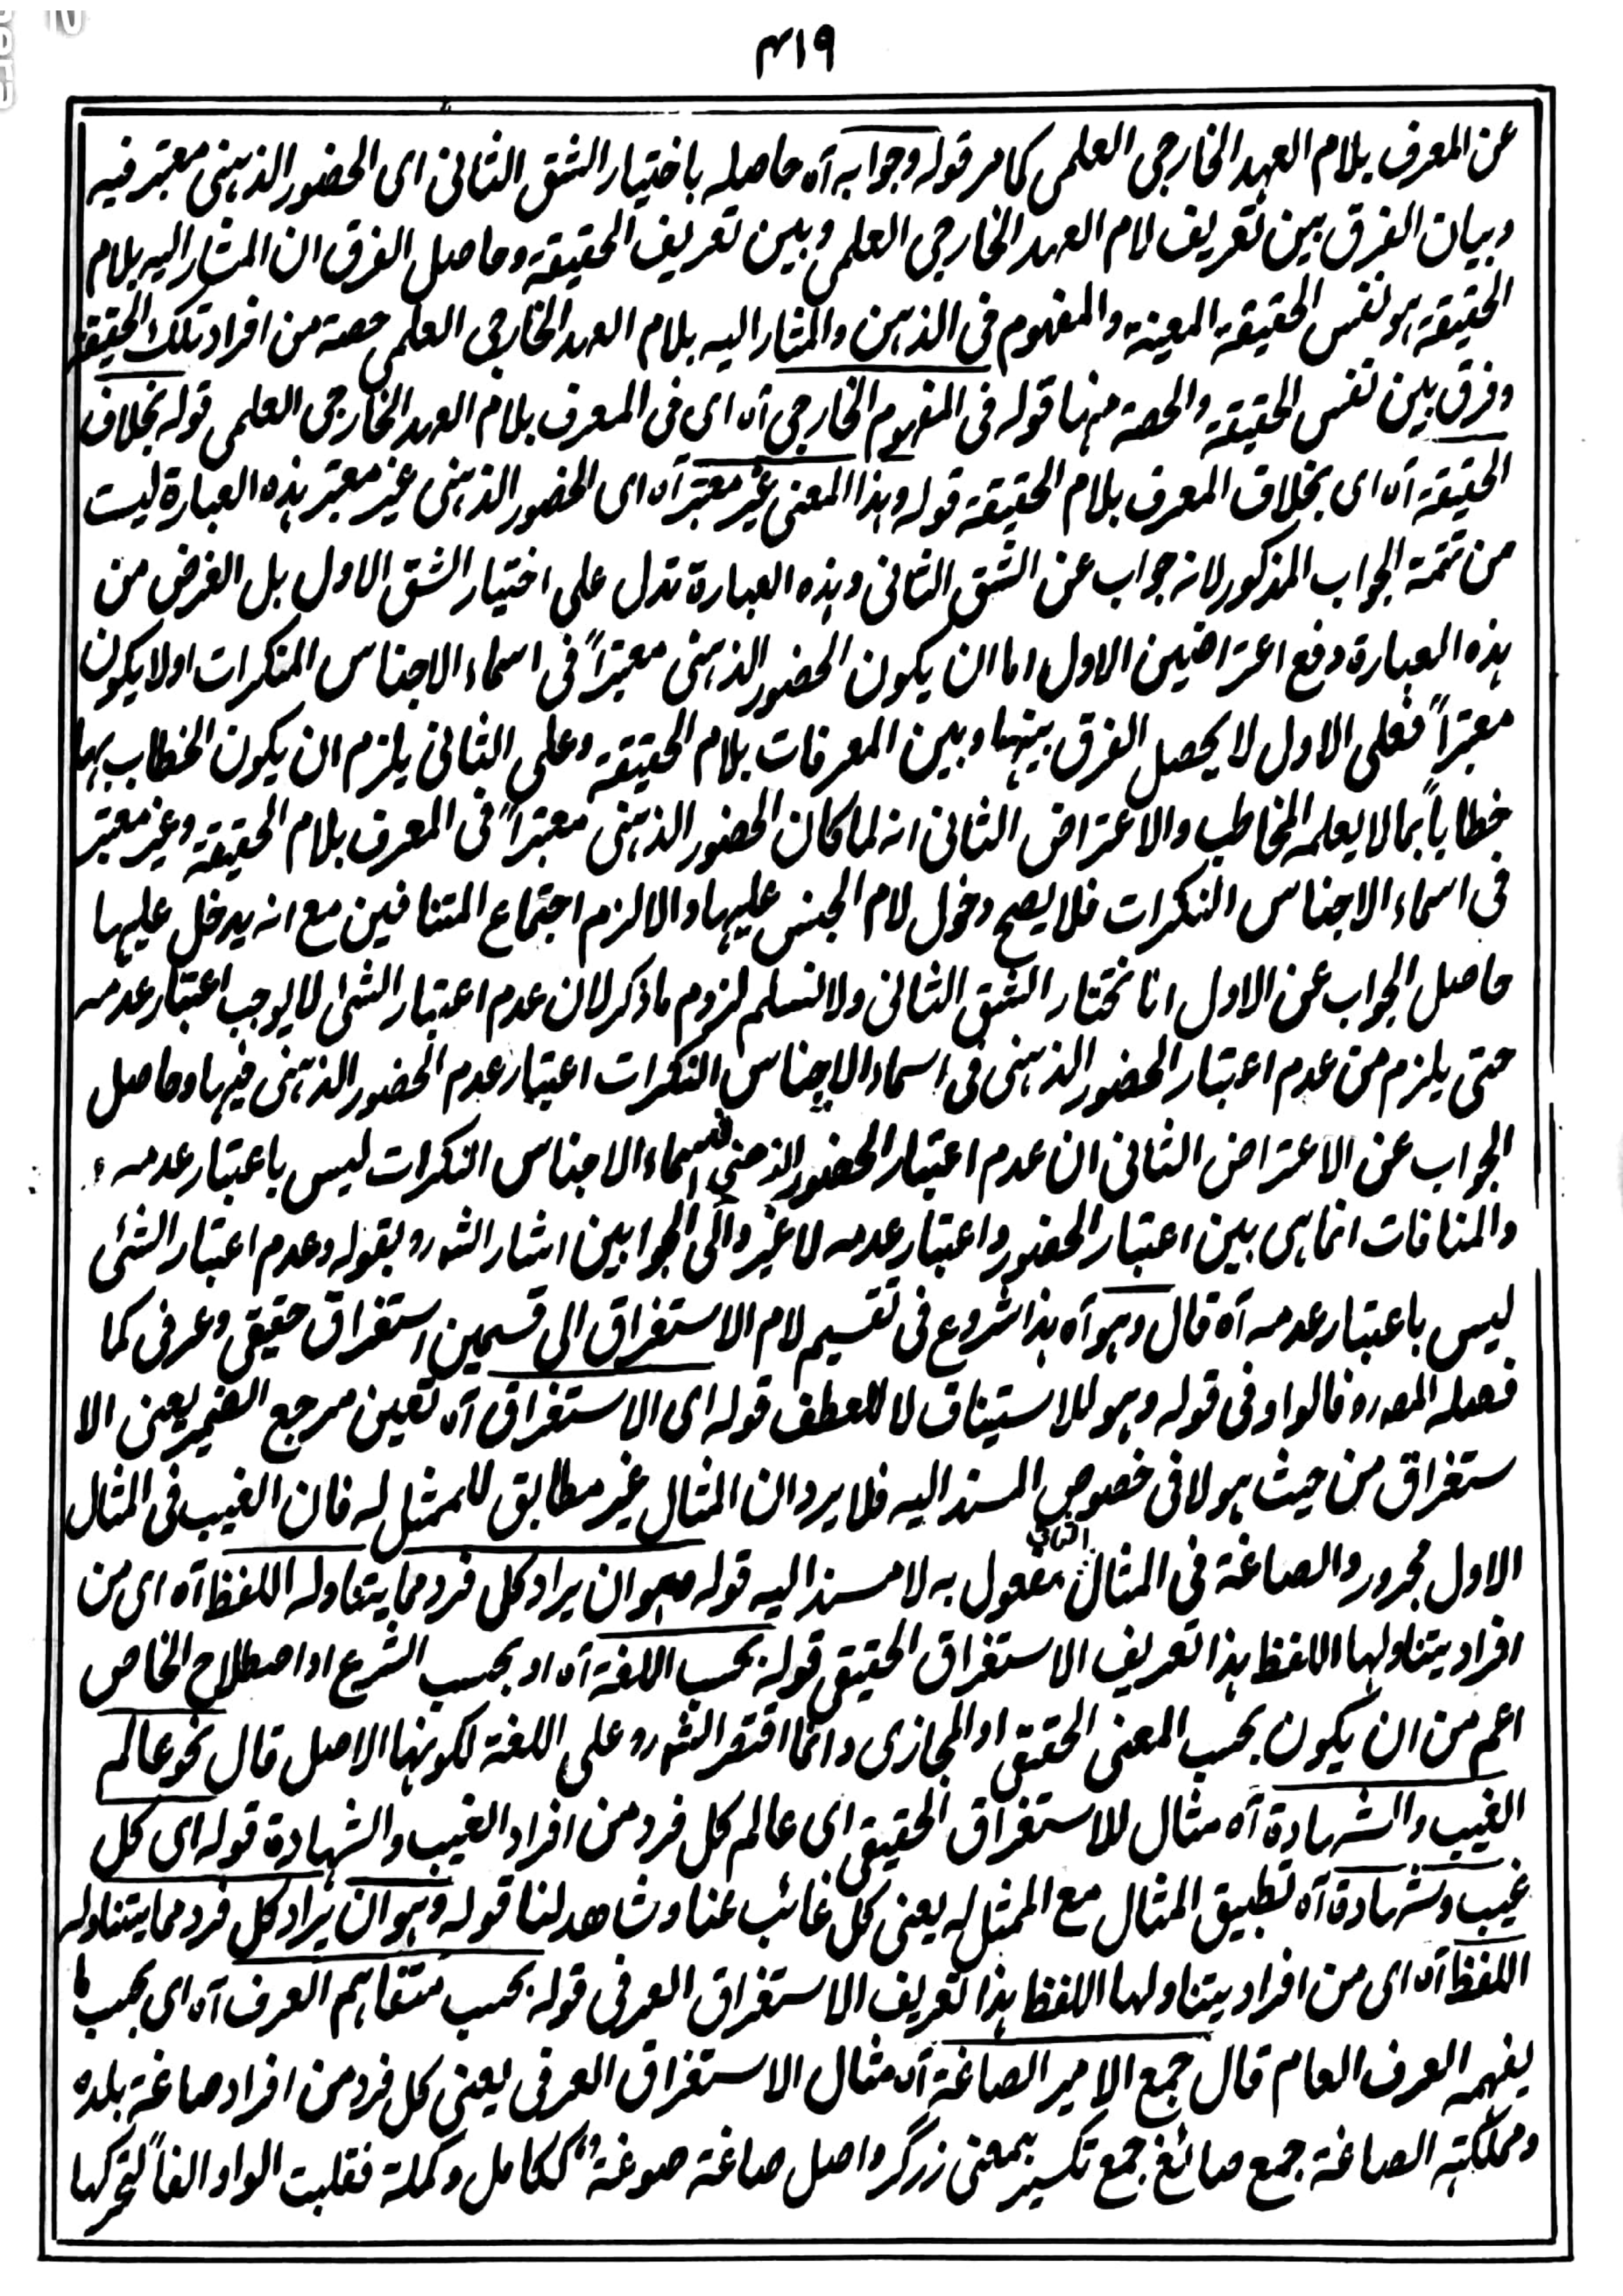 ۴۱۹
عن المعرف بلام العهد الخارجى العلمى كما مر قوله وجوابه آه حاصله باختيار الشق الثانى اى الحضور الذهنى معتبر فيه
وبيان الفرق بين تعريف لام العهد الخارجى العلمى وبين تعريف الحقيقة وحاصل الفرق ان المشار اليه بلام
الحقيقة هو نفس الحقيقة المعينة والمفهوم فى الذهن والمشار اليه بلام العهد الخارجى العلمى حصة من افراد تلك الحقيقة
وفرق بين نفس الحقيقة والحصة منها قوله فى المفهوم الخارجى آه اى فى المعرف بلام العهد الخارجى العلمى قوله بخلاف
الحقيقة آه اى بخلاف المعرف بلام الحقيقة قوله وهذا المعنى غير معتبر آه اى الحضور الذهنى غير معتبر هذه العبارة ليست
من تتمة الجواب المذكور لانه جواب عن الشق الثانى وهذه العبارة تدل على اختيار الشق الاول بل الغرض من
هذه العبارة دفع اعتراضين الاول اما ان يكون الحضور الذهنى معتبراً فى اسماء الاجناس المنكرات اولا يكون
معتبراً فعلى الاول لا يحصل الفرق بينها وبين المعرفات بلام الحقيقة وعلى الثانى يلزم ان يكون الخطاب بها
خطاباً بما لا يعلمه المخاطب والاعتراض الثانى انه لما كان الحضور الذهنى معتبراً فى المعرف بلام الحقيقة وغير معتبر
فى اسماء الاجناس النكرات فلا يصح دخول لام الجنس عليها والا لزم اجتماع المتنافين مع انه يدخل عليها
حاصل الجواب عن الاول انا نختار الشق الثانى ولا نسلم لزوم ما ذكر لان عدم اعتبار الشئ لا يوجب اعتبار عدمه
حتى يلزم من عدم اعتبار الحضور الذهنى فى اسماء الاجناس النكرات اعتبار عدم الحضور الذهنى فيها وحاصل
الجواب عن الاعتراض الثانى ان عدم اعتبار الحضور الذهنى فى اسماء الاجناس النكرات ليس باعتبار عدمه
والمنافات انما هى بين اعتبار الحضور واعتبار عدمه لا غير والى الجوابين اشار الشه رو بقوله وعدم اعتبار الشئ
ليس باعتبار عدمه آه قال وهو آه هذا شروع فى تقسيم لام الاستغراق الى قسمين استغراق حقيقى وعرفى كما
فصله المصه رو فالواو فى قوله وهو للاستيناف لا للعطف قوله اى الاستغراق آه تعين مرجع الضمير يعنى الا
ستغراق من حيث هو لا فى خصوص المسند اليه فلا يرد ان المثال غير مطابق للممثل له فان الغيب فى المثال
الاول مجرور والصاغة فى المثال الثانى مفعول به لا مسند اليه قوله هو ان يراد كل فرد مما يتناوله اللفظ آه اى من
افراد يتناولها اللفظ هذا تعريف الاستغراق الحقيقى قوله بحسب اللغة آه او بحسب الشرع او اصطلاح الخاص
اعم من ان يكون بحسب المعنى الحقيقى او المجازى وانما اقتصر الشه رو على اللغة لكونها الاصل قال نحو عالم
الغيب والشهادة آه مثال للاستغراق الحقيقى اى عالم كل فرد من افراد الغيب والشهادة قوله اى كل
غيب وشهادة آه تطبيق المثال مع الممثل له يعنى كل غائب عنا وشاهد لنا قوله وهو ان يراد كل فرد مما يتناوله
اللفظ آه اى من افراد يتناولها اللفظ هذا تعريف الاستغراق العرفى قوله بحسب متفاهم العرف آه اى بحسب ما
يفهمه العرف العام قال جمع الامير الصاغة آه مثال الاستغراق العرفى يعنى كل فرد من افراد صاغة بلده
ومملكته الصاغة جمع صائغ جمع تكسير بمعنى زرگر واصل صاغة صوغة ككامل وكملة فقلبت الواو الفاً لتحركها